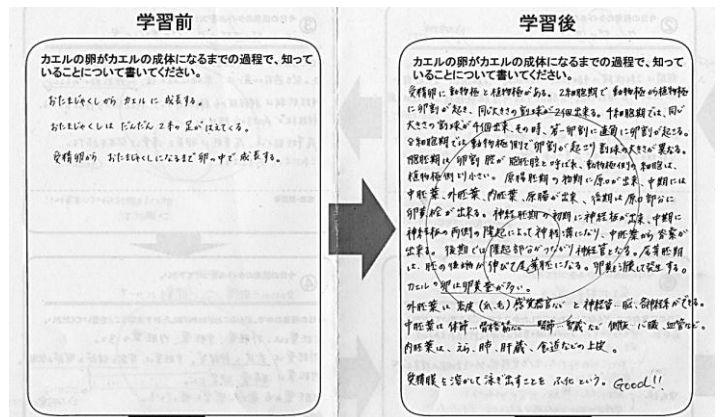 学習前
カエルの卵がカエルの成体になるまでの過程で、知って
いることについて書いてください。
おたまじゃくしから カエルに 成長する。
おたまじゃくしは だんだん 2本の足がはえてくる。
受精卵から おたまじゃくしになるまで卵の中で成長する。
学習後
カエルの卵がカエルの成体になるまでの過程で、知って
いることについて書いてください。
受精卵に動物極と植物極がある。2細胞期で動物極から植物極
に卵割が起き、同じ大きさの割球が2個出来る。4細胞期では、同じ
大きさの割球が4個出来、その時、第一卵割に直角に卵割が起こる。
8細胞期では動物極側で卵割が起こり割球の大きさが異なる。
胞胚期は卵割腔が胞胚腔と呼ばれ、動物極側の細胞は、
植物極側より小さい。原腸胚期の初期に原口が出来、中期には
中胚葉、外胚葉、内胚葉、原腸が出来、後期は原口部分に
卵黄栓が出来る。神経胚期の初期に神経板が出来、中期に
神経板の両側の隆起によって神経溝になり、中胚葉から脊索が
出来る。後期では隆起部分がつながり神経管となる。尾芽胚期
は、胚の後端が伸びて尾芽胚になる。
カエルの卵は卵黄量が多い。
外胚葉は 表皮 感覚器官 と 神経管…脳、 ができる。
中胚葉は 体節…骨格筋 腎節…腎臓など 側板…心臓、血管など。
内胚葉は、えら、肺、肝臓、食道などの上皮。
受精膜を溶かして泳ぎ出すことを ふ化という。 Good!!